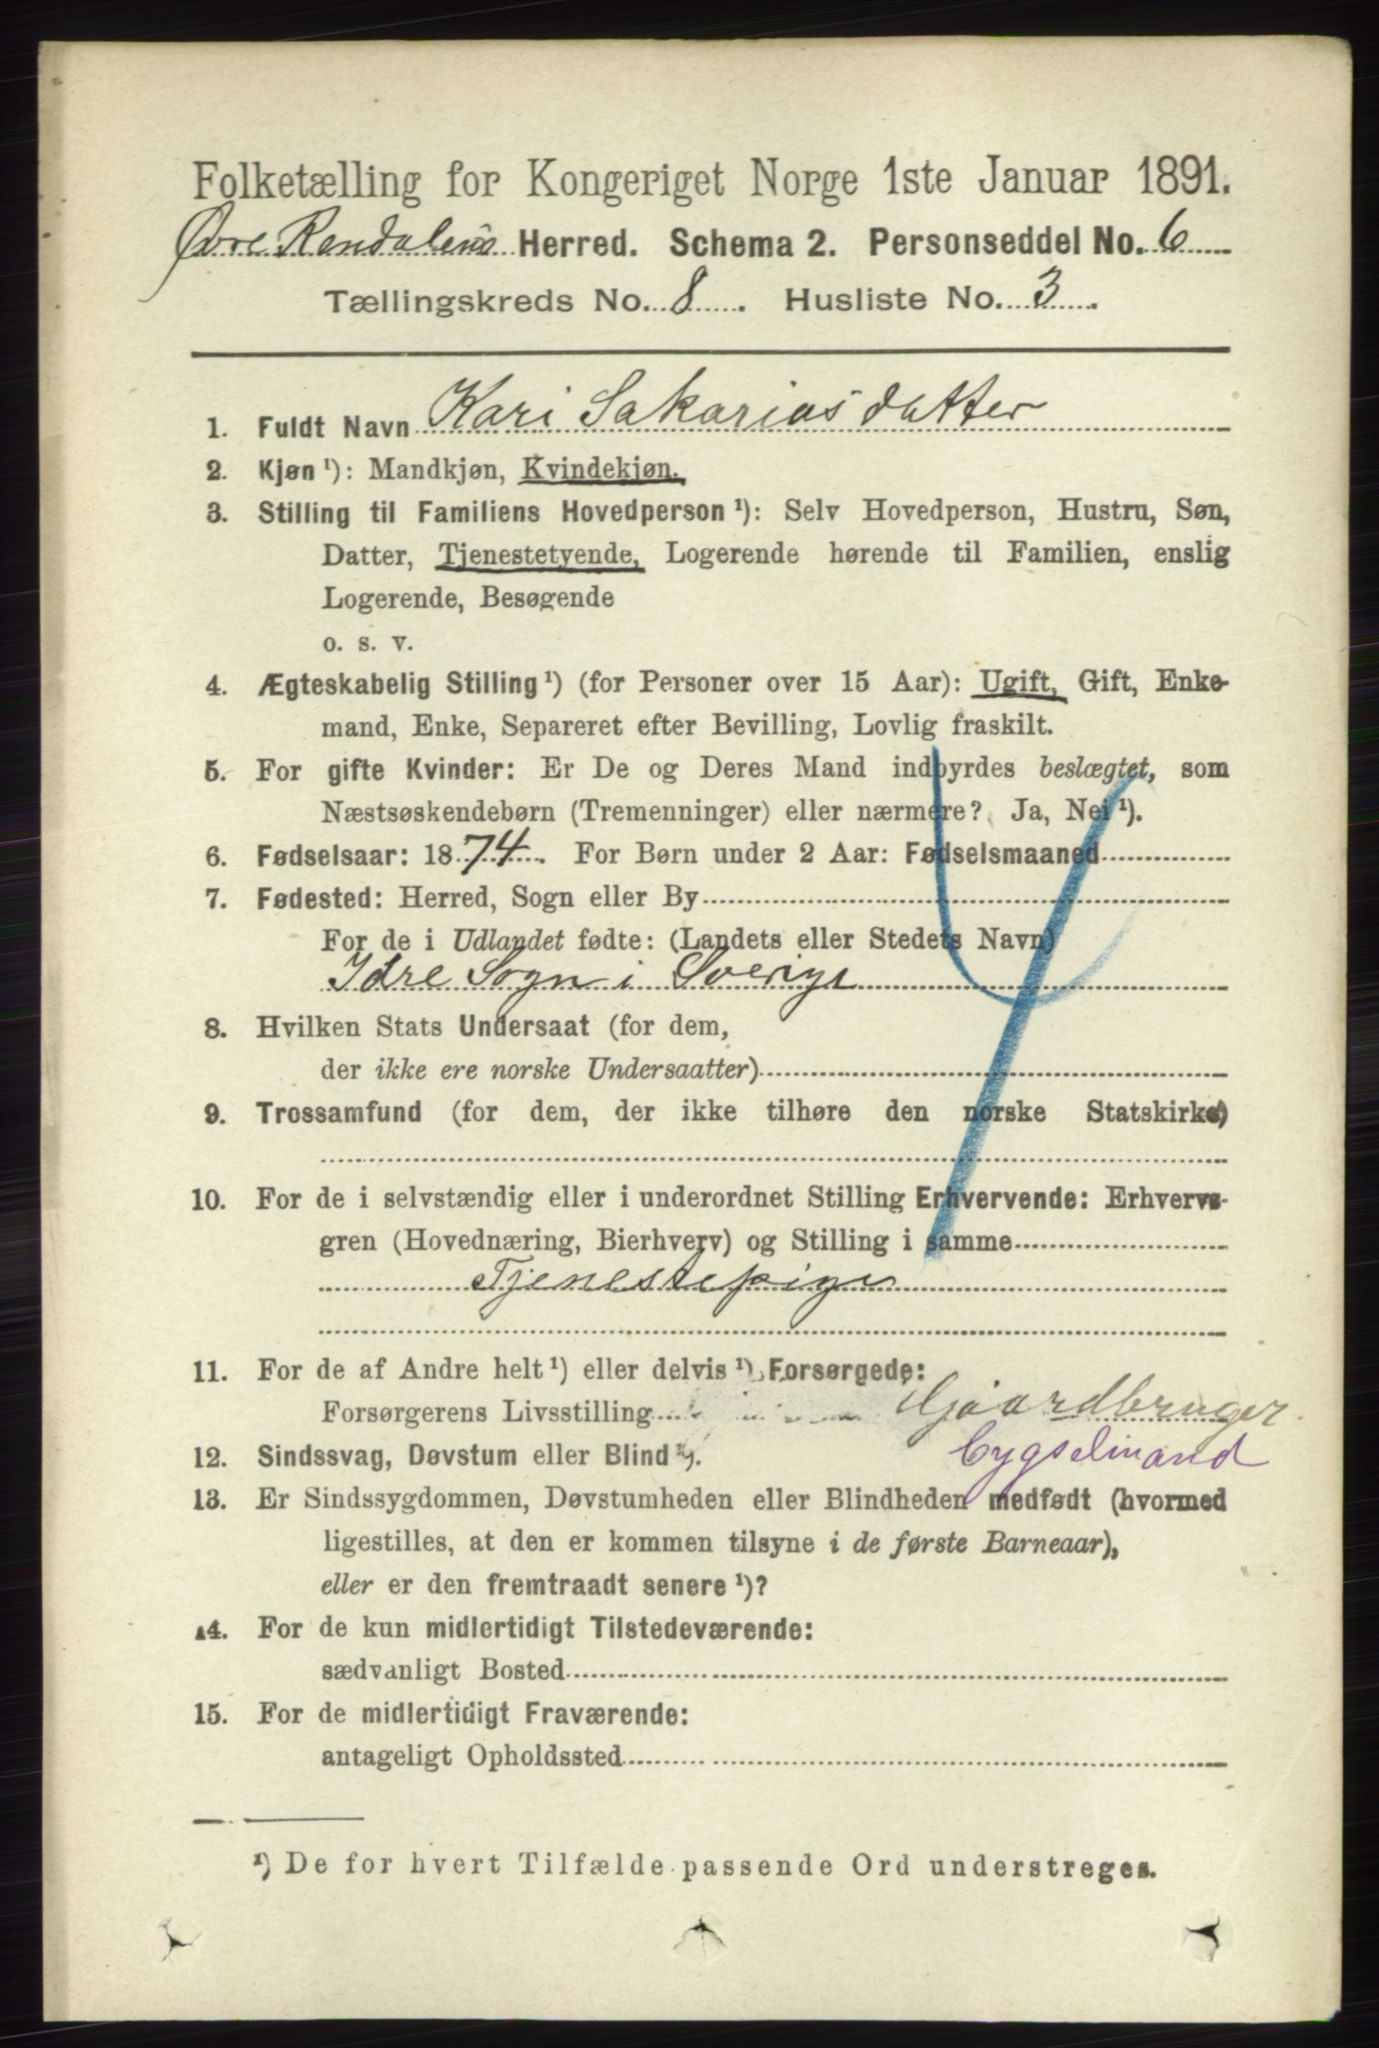 Folketælling for Kongeriget Norge 1ste Januar 1891.
Øvre Rendalens Herred. Schema 2. Personseddel No. 6
Tællingskreds No. 8. Husliste No. 3.
1. Fuldt Navn Kari Sakariasdatter
2. Kjøn ¹): Mandkjøn, Kvindekjøn.
3. Stilling til Familiens Hovedperson ¹): Selv Hovedperson, Hustru, Søn,
Datter, Tjenestetyende, Logerende hørende til Familien, enslig
Logerende, Besøgende
o. s. v.
4. Ægteskabelig Stilling ¹) (for Personer over 15 Aar): Ugift, Gift, Enke-
mand, Enke, Separeret efter Bevilling, Lovlig fraskilt.
5. For gifte Kvinder: Er De og Deres Mand indbyrdes beslægtet, som
Næstsøskendebørn (Tremenninger) eller nærmere? Ja, Nei ¹).
6. Fødselsaar: 1874. For Børn under 2 Aar: Fødselsmaaned
7. Fødested: Herred, Sogn eller By
For de i Udlandet fødte: (Landets eller Stedets Navn)
Idre Sogn i Sverige
8. Hvilken Stats Undersaat (for dem,
der ikke ere norske Undersaatter)
9. Trossamfund (for dem, der ikke tilhøre den norske Statskirke)
10. For de i selvstændig eller i underordnet Stilling Erhvervende: Erhvervs-
gren (Hovednæring, Bierhverv) og Stilling i samme
Tjenestepige
11. For de af Andre helt ¹) eller delvis ¹) Forsørgede:
Forsørgerens Livsstilling Gaardbruger
12. Sindssvag, Døvstum eller Blind ¹). Bygselmand
13. Er Sindssygdommen, Døvstumheden eller Blindheden medfødt (hvormed
ligestilles, at den er kommen tilsyne i de første Barneaar),
eller er den fremtraadt senere ¹)?
14. For de kun midlertidigt Tilstedeværende:
sædvanligt Bosted
15. For de midlertidigt Fraværende:
antageligt Opholdssted
¹) De for hvert Tilfælde passende Ord understreges.